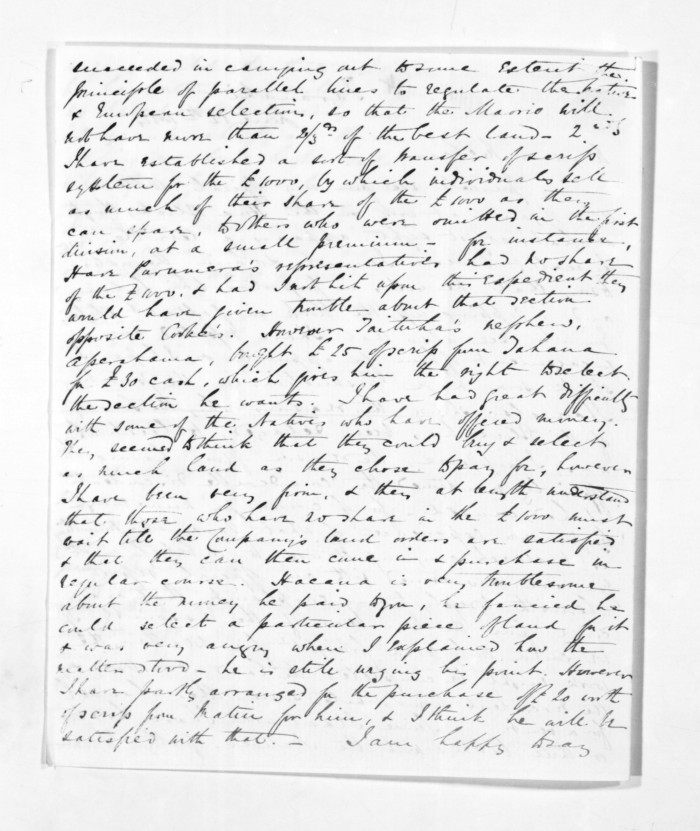 succeeded in carrying out to some extent the
principle of parallel lines to regulate the Native
& European selection, so that the Maoris will
not have more than 2/3rds of the best land - 2
I have established a sort of transfer of scrip
system for the £1000, by which individuals sell
as much of their share of the £1000 as they
can spare, to others who were omitted in the first
division, at a small premium - for instance,
Hare representatives had no share
of the £1000. & had I not hit upon this expedient they
would have given trouble about that section
opposite Cooke's. However nephew,
Aperahama, bought £25 of scrip from Tahana
for £30 cash, which gives him the right to select
the section he wants. I have had great difficulty
with some of the Natives who have offered money.
They seemed to think that they could buy & select
as much land as they chose to pay for, however
I have been very firm, & they at length understand
that those who have no share in the £1000 must
wait till the Company's land orders are satisfied
& that they can then come in & purchase in
regular course. is very troublesome
about the money he paid to you, he fancied he
could select a particular piece of land for it
& was very angry when I explained how the
matter stood - he is still urging his point. However
I have partly arranged for the purchase of £20 worth
of scrip from for him, & I think he will be
satisfied with that. - I am happy to say